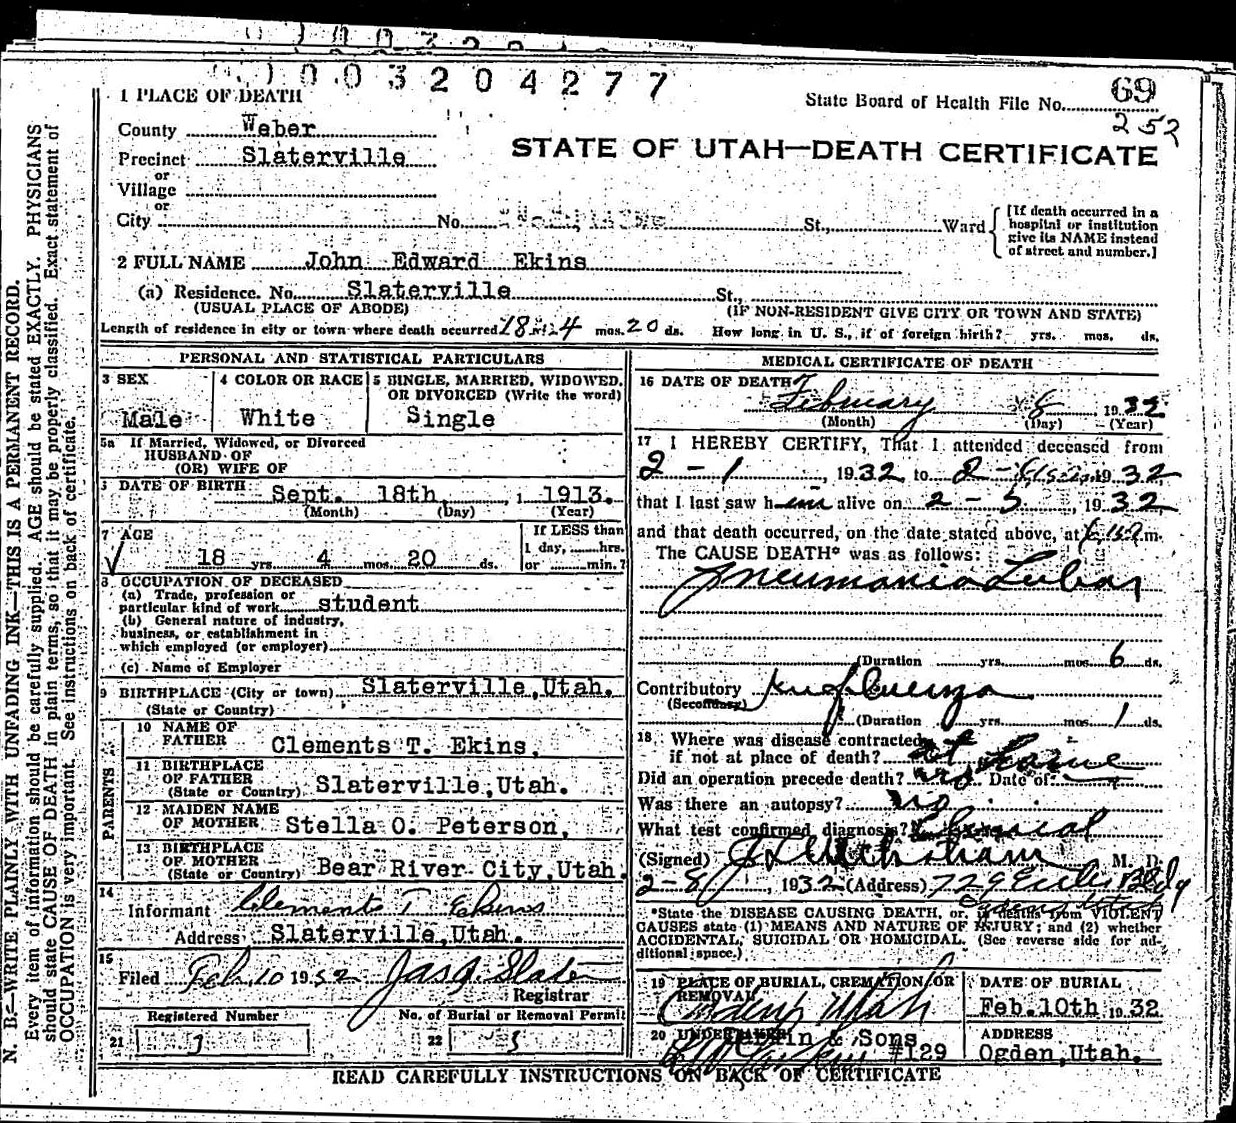 1003204277
1 PLACE OF DEATH
State Board of Health File No. 69
252
County Weber
STATE OF UTAH—DEATH CERTIFICATE
Precinct Slaterville
or
Village
or
City No. St., Ward
[If death occurred in a
hospital or institution
give its NAME instead
of street and number.]
2 FULL NAME John Edward Ekins
(a) Residence. No. Slaterville St.,
(USUAL PLACE OF ABODE) (IF NON-RESIDENT GIVE CITY OR TOWN AND STATE)
Length of residence in city or town where death occurred 18 yrs. 4 mos. 20 ds. How long in U. S., if of foreign birth? yrs. mos. ds.
PERSONAL AND STATISTICAL PARTICULARS
3 SEX
Male
4 COLOR OR RACE
White
5 SINGLE, MARRIED, WIDOWED,
OR DIVORCED (Write the word)
Single
5a If Married, Widowed, or Divorced
HUSBAND OF
(OR) WIFE OF
DATE OF BIRTH Sept. 18th, 1913.
(Month) (Day) (Year)
7 AGE
18 yrs. 4 mos. 20 ds.
If LESS than
1 day, hrs.
or min.?
8 OCCUPATION OF DECEASED
(a) Trade, profession or
particular kind of work student
(b) General nature of industry,
business, or establishment in
which employed (or employer)
(c) Name of Employer
9 BIRTHPLACE (City or town) Slaterville, Utah.
(State or Country)
PARENTS
10 NAME OF
FATHER Clements T. Ekins,
11 BIRTHPLACE
OF FATHER
(State or Country) Slaterville, Utah.
12 MAIDEN NAME
OF MOTHER Stella O. Peterson,
13 BIRTHPLACE
OF MOTHER
(State or Country) Bear River City, Utah.
14
Informant Clements T Ekins
Address Slaterville, Utah.
15
Filed Feb. 10 1932 Jas. A. Slater
Registrar
Registered Number
21
No. of Burial or Removal Permit
22
MEDICAL CERTIFICATE OF DEATH
16 DATE OF DEATH
February 8 1932
(Month) (Day) (Year)
17 I HEREBY CERTIFY, That I attended deceased from
2 - 1, 1932 to 2 - 1932
that I last saw him alive on 2 - 5, 1932
and that death occurred, on the date stated above, at m.
The CAUSE DEATH* was as follows:
Pneumonia Lobar
(Duration yrs. mos. 6 ds.
Contributory Influenza
(Secondary)
(Duration yrs. mos. 1 ds.
18 Where was disease contracted
if not at place of death? at home
Did an operation precede death? no Date of
Was there an autopsy? no
What test confirmed diagnosis? Clinical
(Signed) M. D.
2-8, 1932 (Address) 729 Eccles Bldg
Ogden Utah
*State the DISEASE CAUSING DEATH, or, in deaths from VIOLENT
CAUSES state (1) MEANS AND NATURE OF INJURY; and (2) whether
ACCIDENTAL, SUICIDAL OR HOMICIDAL. (See reverse side for ad-
ditional space.)
19 PLACE OF BURIAL, CREMATION OR
REMOVAL
Ogden, Utah
DATE OF BURIAL
Feb. 10th 1932
20 UNDERTAKER
& Sons
#129
ADDRESS
Ogden, Utah.
READ CAREFULLY INSTRUCTIONS ON BACK OF CERTIFICATE
N. B.—WRITE PLAINLY WITH UNFADING INK—THIS IS A PERMANENT RECORD.
Every item of information should be carefully supplied. AGE should be stated EXACTLY. PHYSICIANS
should state CAUSE OF DEATH in plain terms, so that it may be properly classified. Exact statement of
OCCUPATION is very important. See instructions on back of certificate.